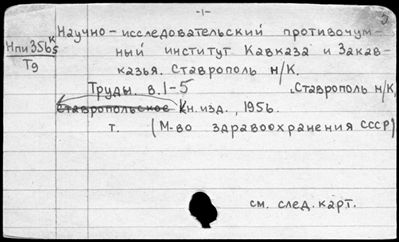 -1-
2
Нпи356к5
Т9
Научно-исследовательский противочум-
ный институт Кавказа и Закав-
казья. Ставрополь н/К.
Труды. в.1-5 Ставрополь н/К,
Ставропольское Кн.изд., 1956.
т. (М-во здравоохранения СССР)
см. след. карт.